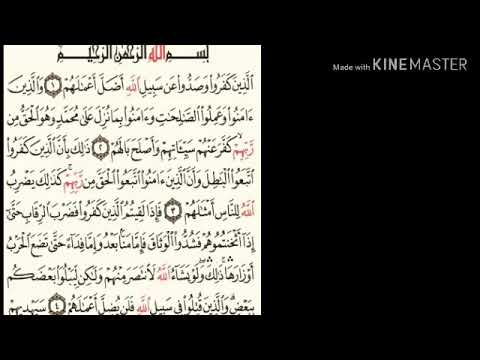 بِسْمِ اللَّهِ الرَّحْمَٰنِ الرَّحِيمِ
Made with KINEMASTER
الَّذِينَ كَفَرُوا وَصَدُّوا عَن سَبِيلِ اللَّهِ أَضَلَّ أَعْمَالَهُمْ ١ وَالَّذِينَ
ءَامَنُوا وَعَمِلُوا الصَّالِحَاتِ وَءَامَنُوا بِمَا نُزِّلَ عَلَىٰ مُحَمَّدٍ وَهُوَ الْحَقُّ مِن
رَّبِّهِمْ كَفَّرَ عَنْهُمْ سَيِّئَاتِهِمْ وَأَصْلَحَ بَالَهُمْ ٢ ذَٰلِكَ بِأَنَّ الَّذِينَ كَفَرُوا
اتَّبَعُوا الْبَاطِلَ وَأَنَّ الَّذِينَ ءَامَنُوا اتَّبَعُوا الْحَقَّ مِن رَّبِّهِمْ كَذَٰلِكَ يَضْرِبُ
اللَّهُ لِلنَّاسِ أَمْثَالَهُمْ ٣ فَإِذَا لَقِيتُمُ الَّذِينَ كَفَرُوا فَضَرْبَ الرِّقَابِ حَتَّىٰ
إِذَا أَثْخَنتُمُوهُمْ فَشُدُّوا الْوَثَاقَ فَإِمَّا مَنًّا بَعْدُ وَإِمَّا فِدَاءً حَتَّىٰ تَضَعَ الْحَرْبُ
أَوْزَارَهَا ذَٰلِكَ وَلَوْ يَشَاءُ اللَّهُ لَانتَصَرَ مِنْهُمْ وَلَٰكِن لِّيَبْلُوَا بَعْضَكُم
بِبَعْضٍ وَالَّذِينَ قُتِلُوا فِي سَبِيلِ اللَّهِ فَلَن يُضِلَّ أَعْمَالَهُمْ ٤ سَيَهْدِيهِمْ